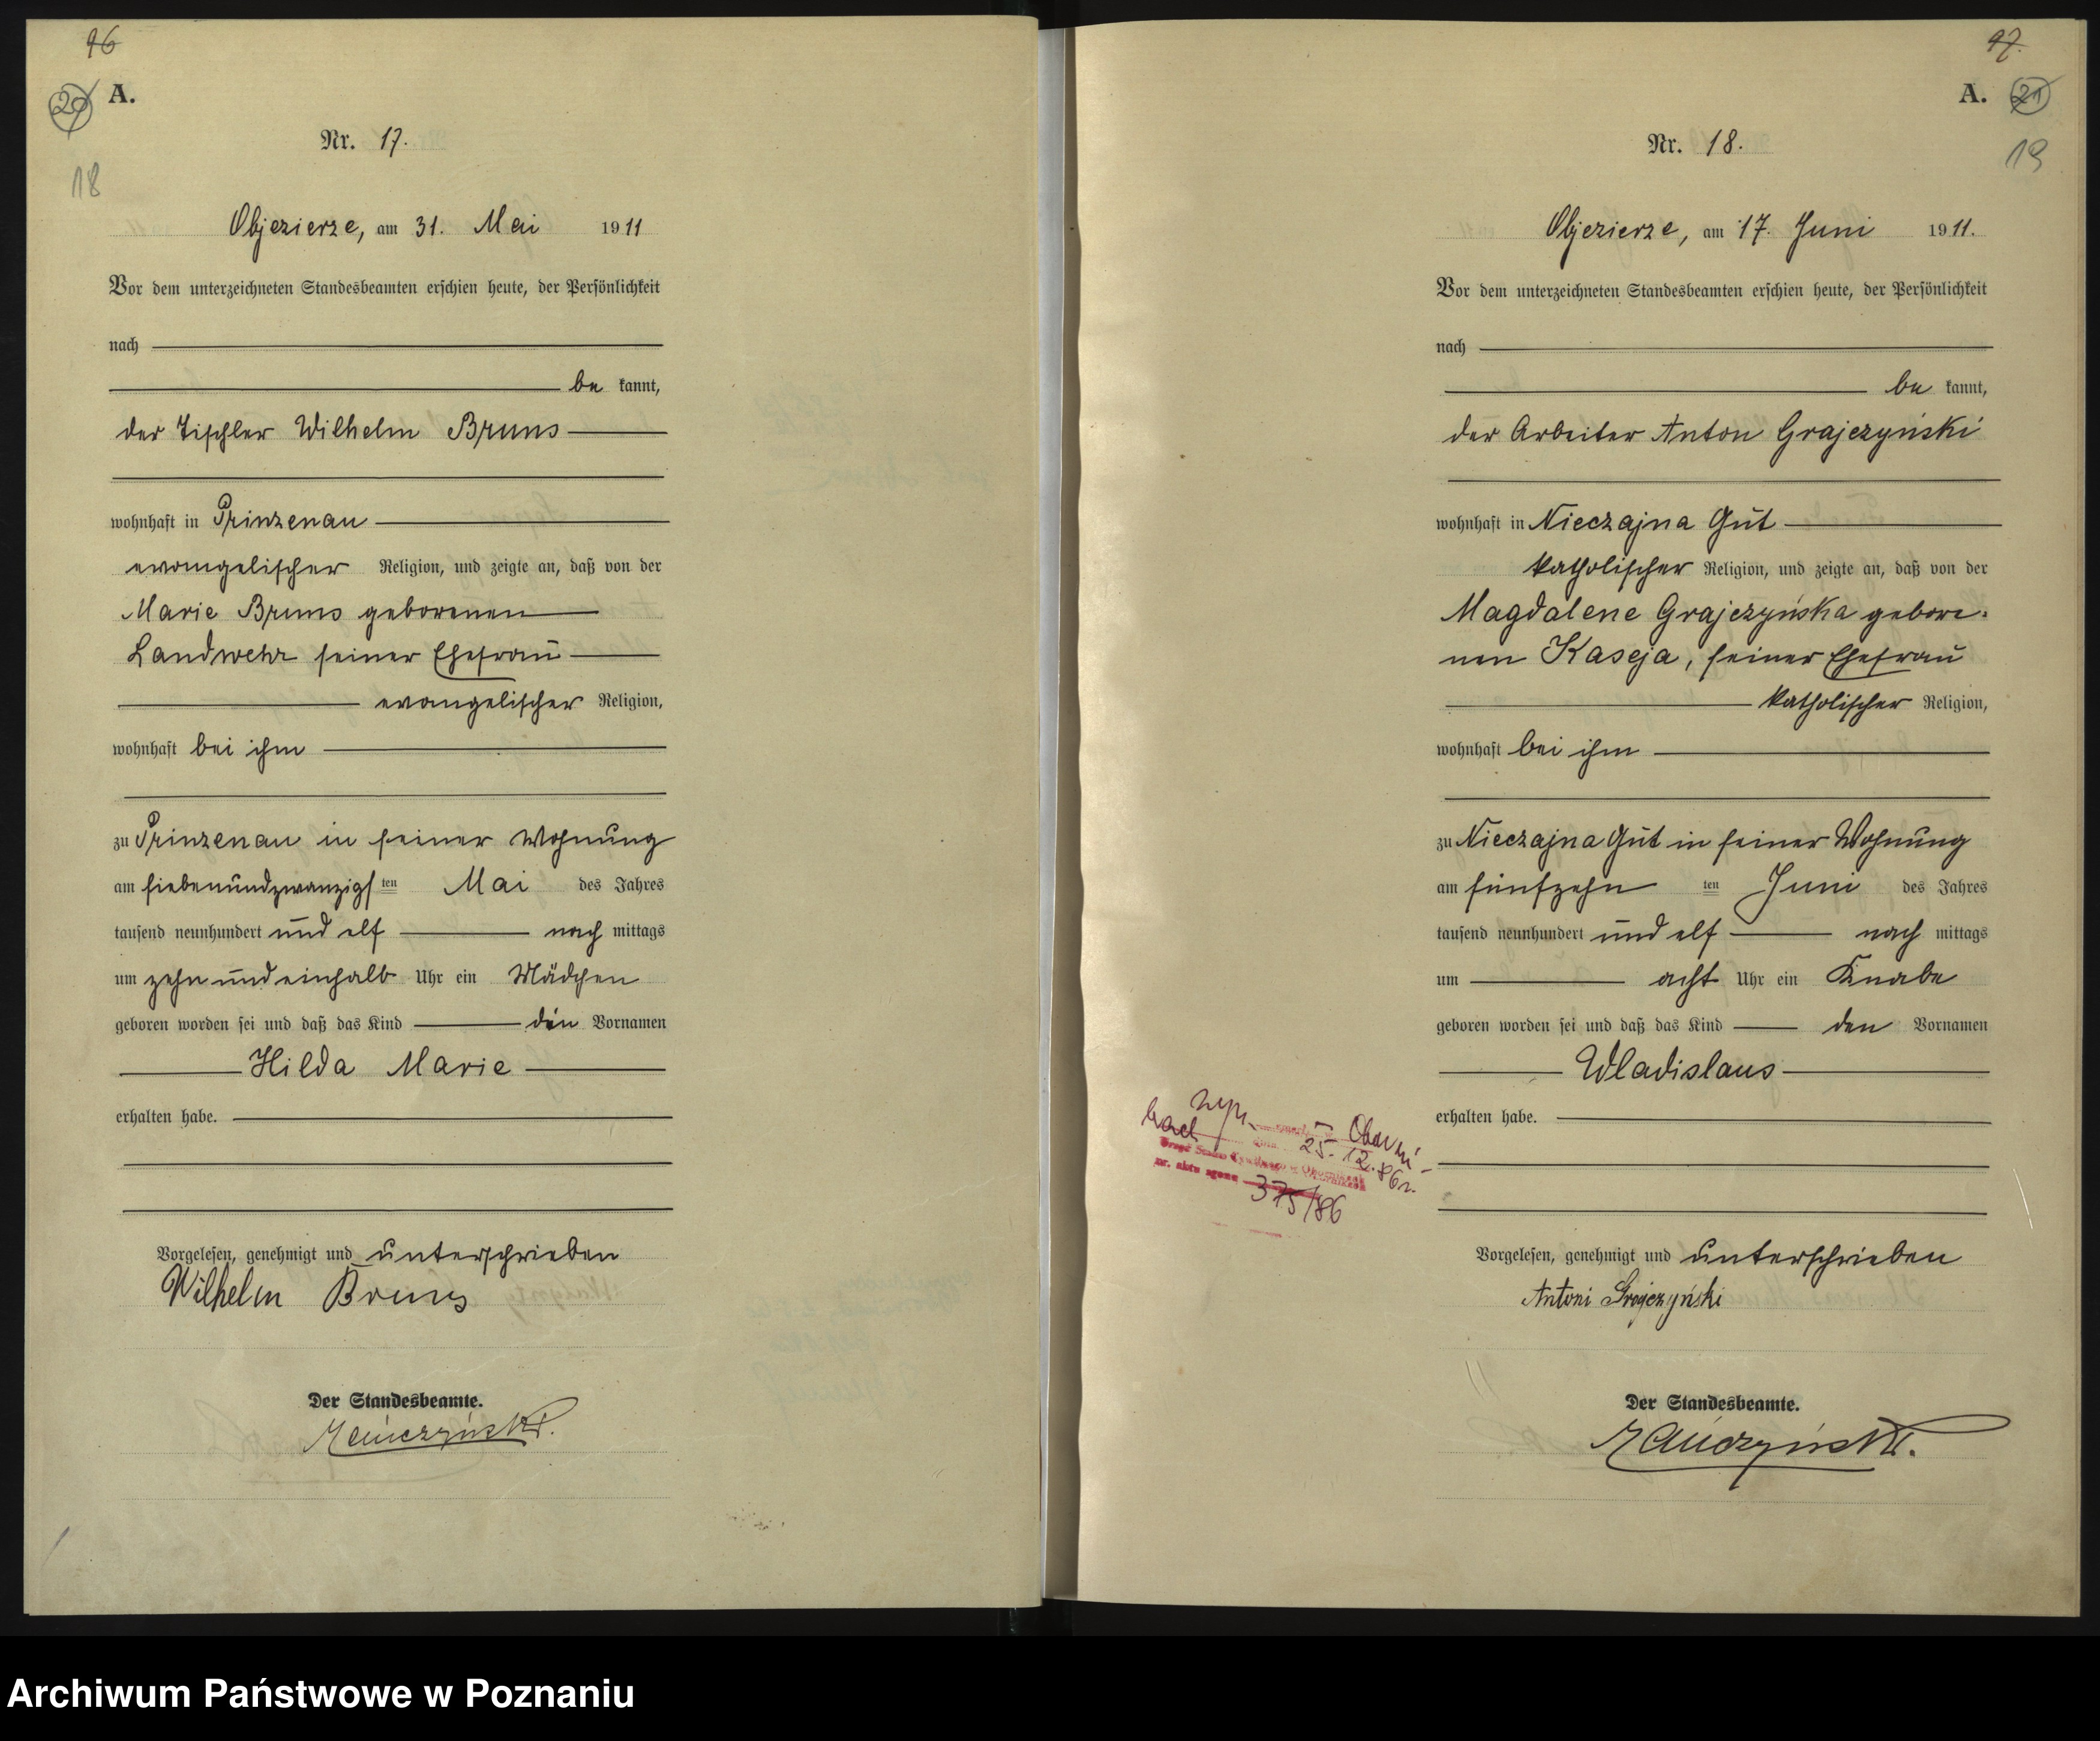 96
A.
Nr. 17.
18
Objezierze, am 31. Mai 1911
Vor dem unterzeichneten Standesbeamten erschien heute, der Persönlichkeit
nach
be kannt,
der Tischler Wilhelm Bruns
wohnhaft in Prinzenau
evangelischer Religion, und zeigte an, daß von der
Marie Bruns geborenen
Landwehr seiner Ehefrau
evangelischer Religion,
wohnhaft bei ihm
zu Prinzenau in seiner Wohnung
am siebenundzwanzigsten Mai des Jahres
tausend neunhundert und elf nach mittags
um zehn und einhalb Uhr ein Mädchen
geboren worden sei und daß das Kind den Vornamen
Hilda Marie
erhalten habe.
Vorgelesen, genehmigt und unterschrieben
Wilhelm Bruns
Der Standesbeamte.
97.
A. 21
Nr. 18.
19
Objezierze, am 17. Juni 1911.
Vor dem unterzeichneten Standesbeamten erschien heute, der Persönlichkeit
nach
be kannt,
der Arbeiter Anton Grajczyński
wohnhaft in Nieczajna Gut
katholischer Religion, und zeigte an, daß von der
Magdalene Grajczyńska gebore-
nen Kaseja, seiner Ehefrau
katholischer Religion,
wohnhaft bei ihm
zu Nieczajna Gut in seiner Wohnung
am fünfzehn ten Juni des Jahres
tausend neunhundert und elf nach mittags
um acht Uhr ein Knabe
geboren worden sei und daß das Kind den Vornamen
Wladislaus
erhalten habe.
25.12.86r.
nr. aktu zgonu 375/86
Vorgelesen, genehmigt und unterschrieben
Antoni Grajczyński
Der Standesbeamte.
Archiwum Państwowe w Poznaniu